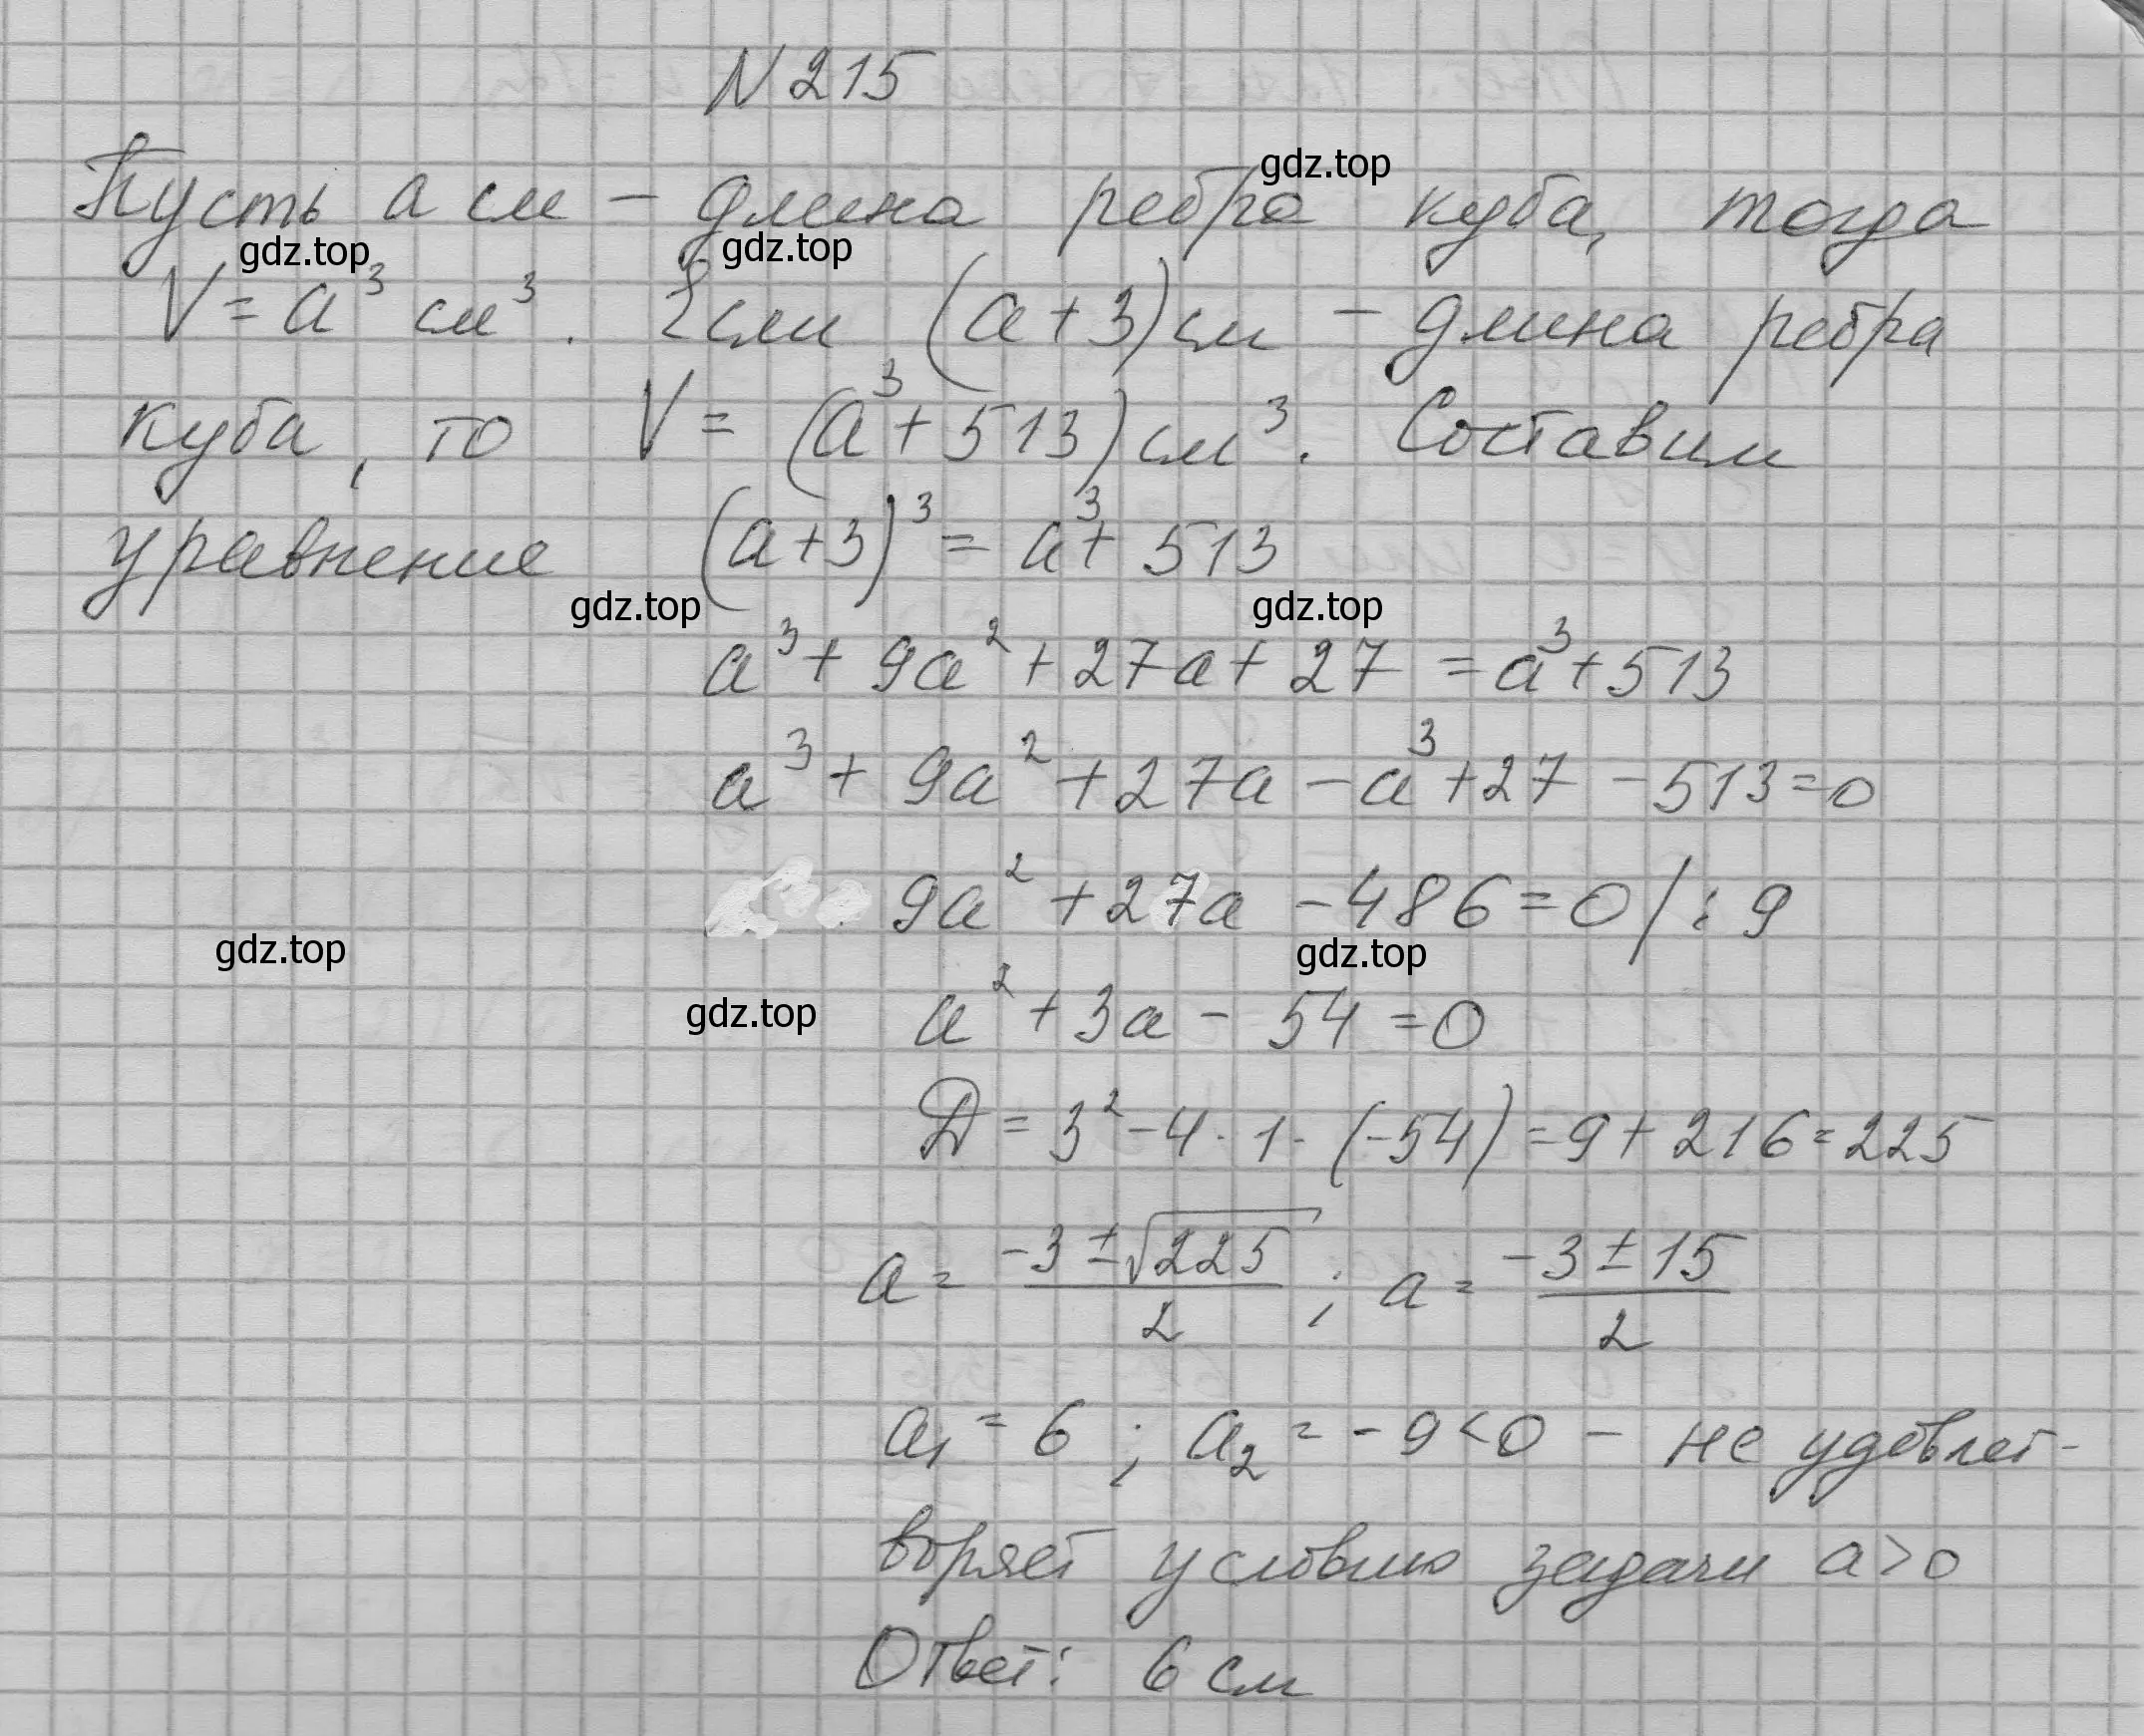 N 215
gdz.top
Пусть a см – длина ребра куба, тогда
gdz.top gdz.top
V = a³ см³. Если (a+3) см – длина ребра
куба, то V = (a³ + 513) см³. Составим
уравнение (a+3)³ = a³ + 513
gdz.top gdz.top
a³ + 9a² + 27a + 27 = a³ + 513
a³ + 9a² + 27a – a³ + 27 – 513 = 0
9a² + 27a – 486 = 0 / : 9
gdz.top gdz.top
a² + 3a – 54 = 0
gdz.top
D = 3² – 4 · 1 · (–54) = 9 + 216 = 225
a = (–3 ± √225)/2 ; a = (–3 ± 15)/2
a₁ = 6 ; a₂ = –9 < 0 – не удовлет-
воряет условию задачи a > 0
Ответ: 6 см